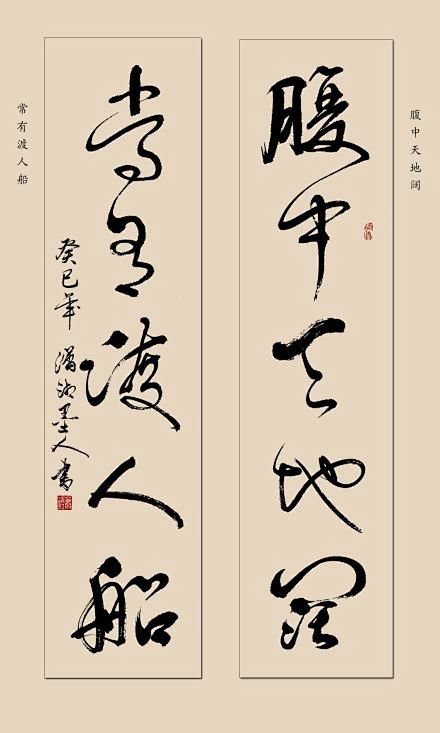 腹中天地阔
腹中天地阔
常有渡人船
癸巳年 潇湘墨人书
常有渡人船